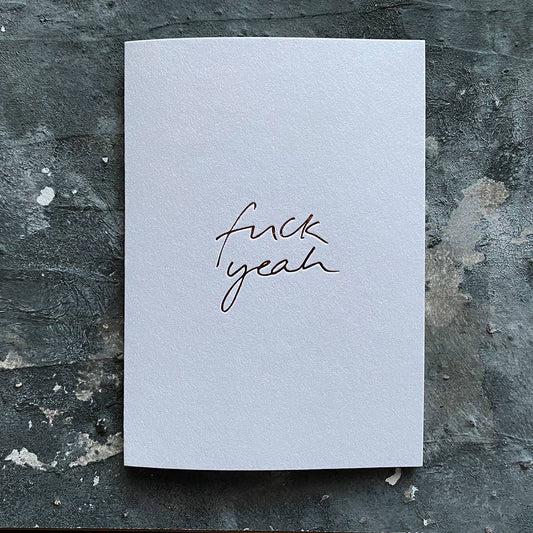 fuck
yeah